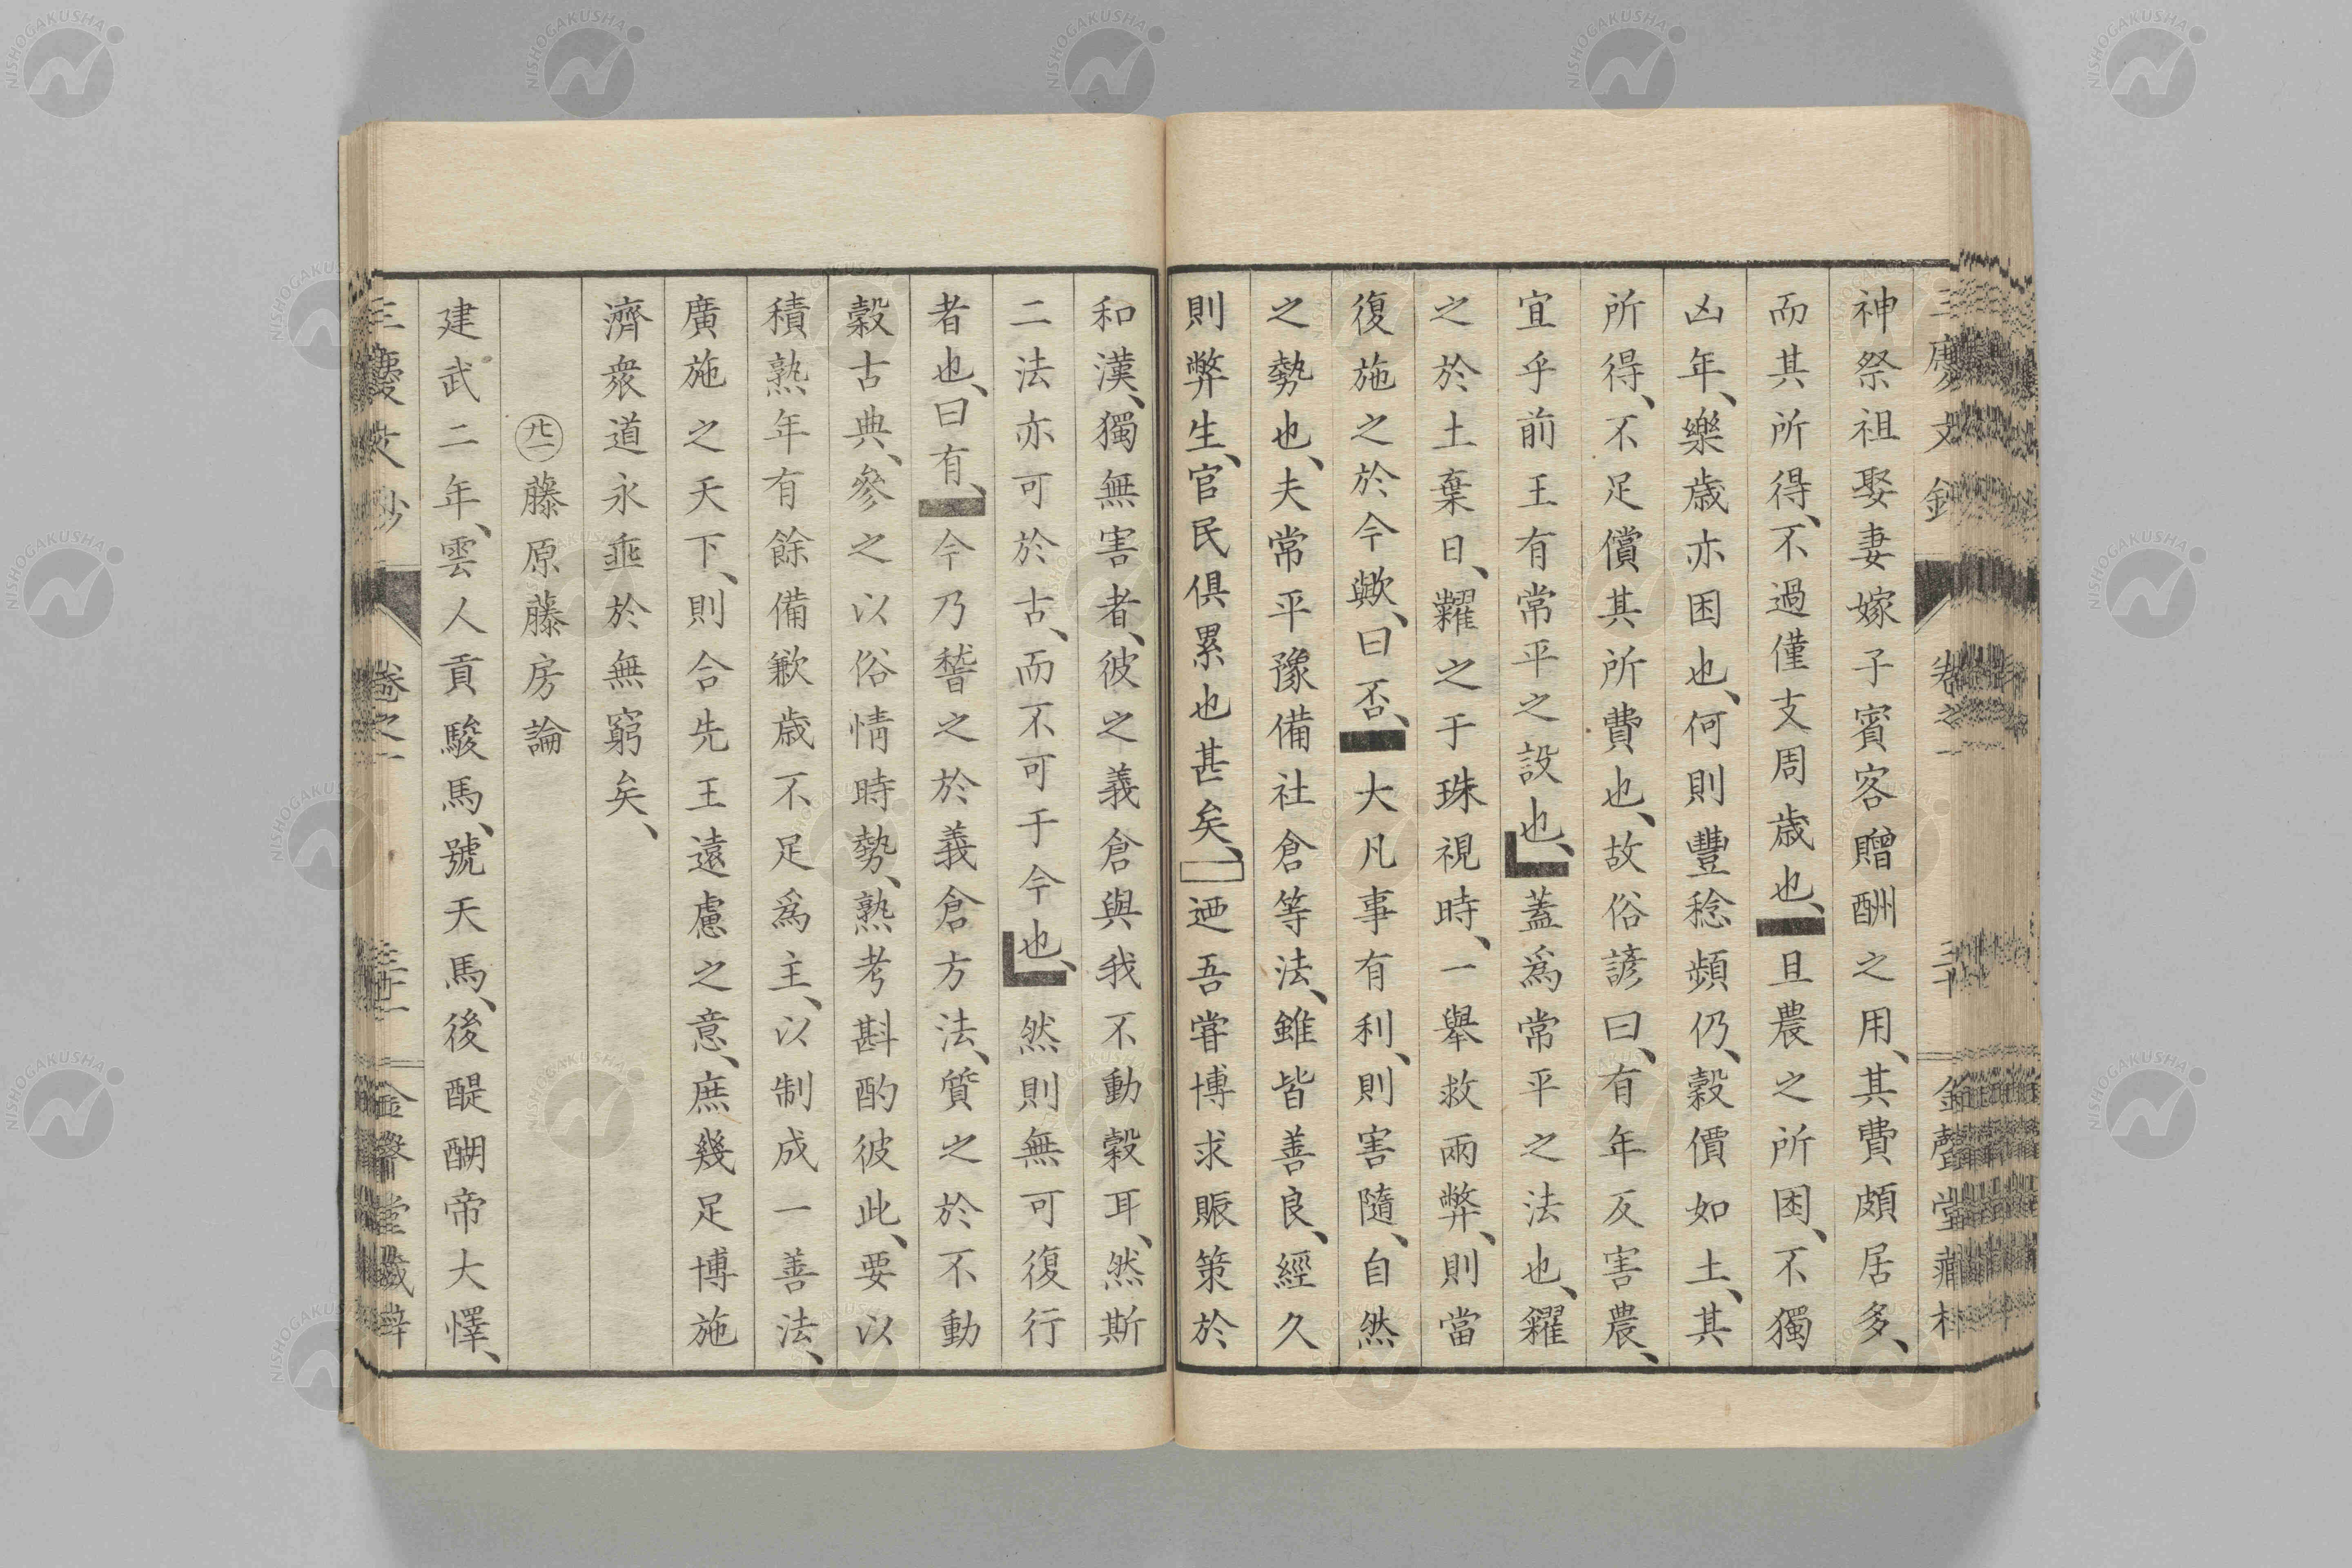 神祭祖娶妻嫁子賓客贈酬之用、其費頗居多、
而其所得、不過僅支周歳也、且農之所困、不獨
凶年、樂歳亦困也、何則豐稔頻仍、穀價如土、其
所得、不足償其所費也、故俗諺曰、有年反害農、
宜乎前王有常平之設也、蓋爲常平之法也、糴
之於土棄日、糶之于珠視時、一舉救兩弊、則當
復施之於今歟、曰否、大凡事有利、則害隨、自然
之勢也、夫常平豫備社倉等法、雖皆善良、經久
則弊生、官民俱累也甚矣、迺吾甞博求賑策於
和漢、獨無害者、彼之義倉與我不動穀耳、然斯
二法亦可於古、而不可于今也、然則無可復行
者也、曰有、今乃誓之於義倉方法、質之於不動
穀古典、參之以俗情時勢、熟考斟酌彼此、要以
積熟年有餘備歉歳不足爲主、以制成一善法、
廣施之天下、則合先王遠慮之意、庶幾足博施
濟衆道永垂於無窮矣、
藤原藤房論
建武二年、雲人貢駿馬、號天馬、後醍醐帝大懌、
三慶文鈔 卷之一